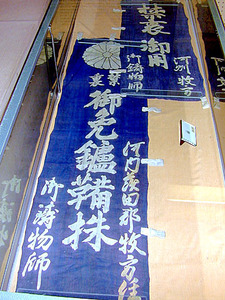 禁裏 御用
河州 牧方
御鋳物師
禁裏
御免鑪鞴株
河内茨田郡牧方住
御鋳物師